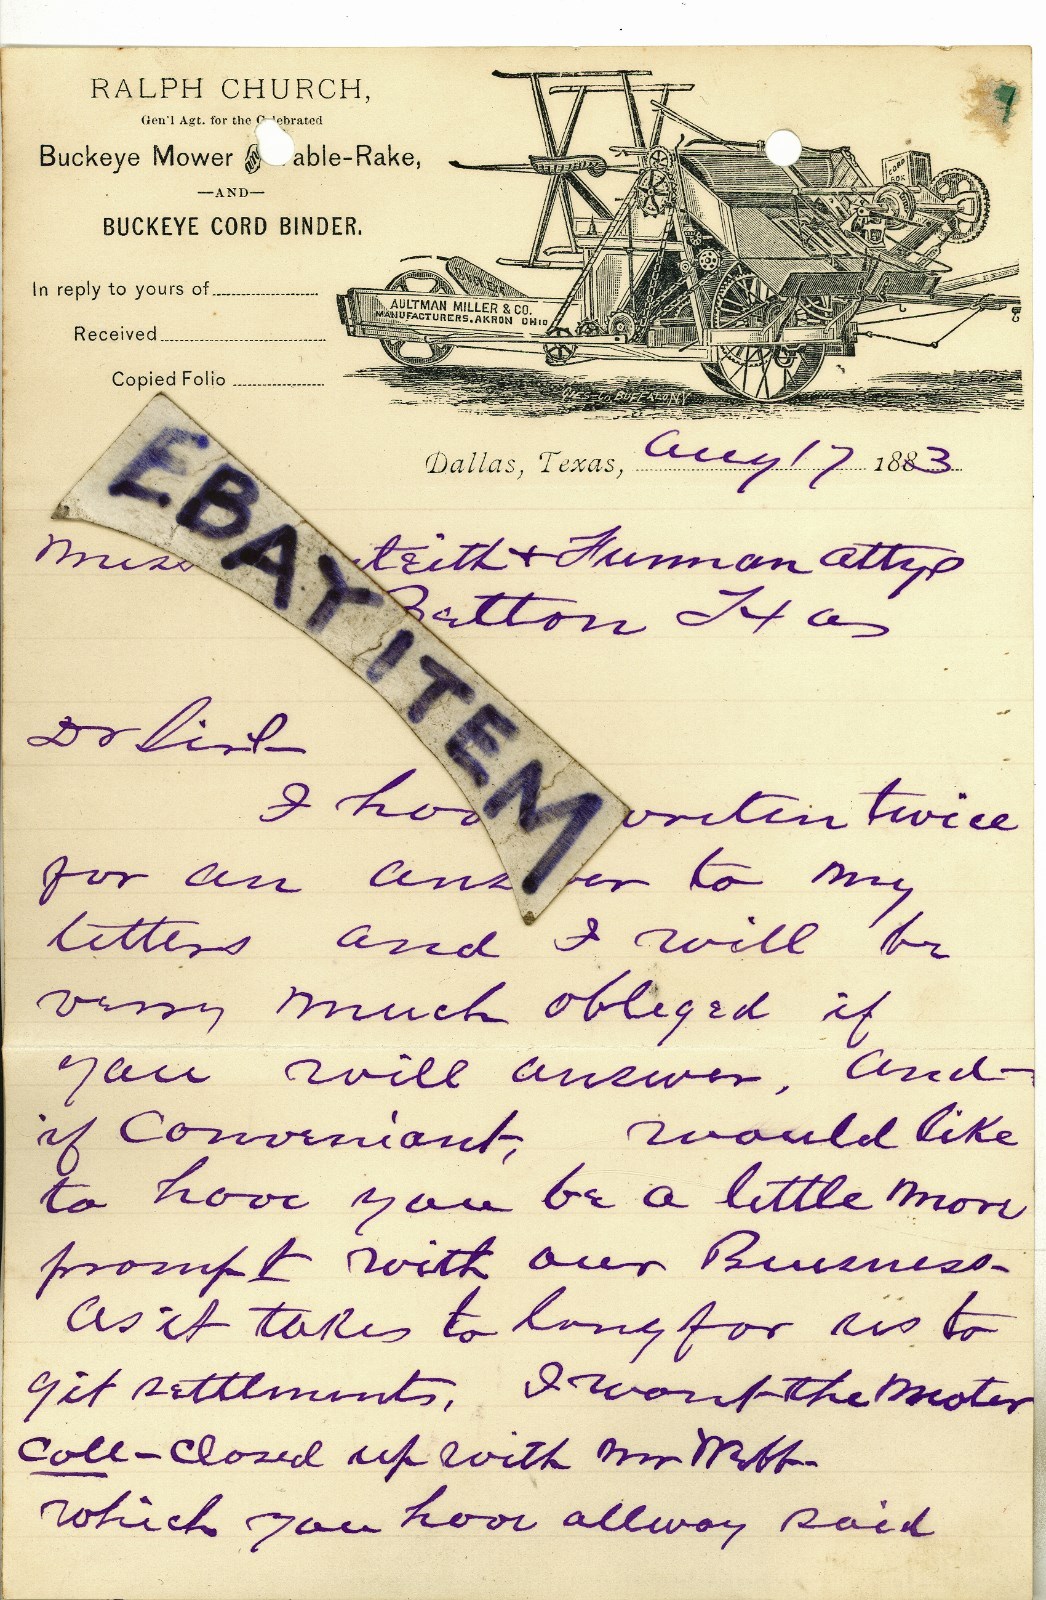 RALPH CHURCH,
Gen'l Agt. for the
Buckeye Mower able-Rake,
—AND—
BUCKEYE CORD BINDER.
In reply to yours of
Received
Copied Folio
CORD BOX
AULTMAN MILLER & CO.
MANUFACTURERS. AKRON OHIO
CO. BUFFALO NY
Dallas, Texas, Aug 17 1883
EBAY ITEM
teith & Furman attys
Belton Txas
Dr Sirs
I have writen twice
for an answer to my
letters and I will be
verry much obleged if
you will answer, and
if Conveniant, would like
to have you be a little more
prompt with our Buisness-
as it takes to long for us to
git settlments, I want the Moter
Coll-Closed up with Mr
which you have allway said